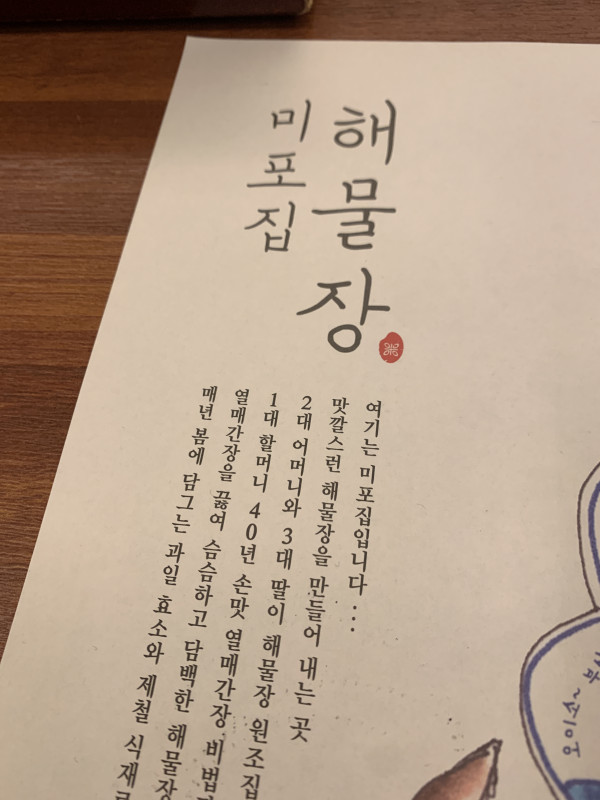 해물장
미포집
여기는 미포집입니다 ...
맛깔스런 해물장을 만들어 내는 곳
2대 어머니와 3대 딸이 해물장 원조집
1대 할머니 40년 손맛 열매간장 비법
열매간장을 끓여 슴슴하고 담백한 해물장
매년 봄에 담그는 과일 효소와 제철 식재